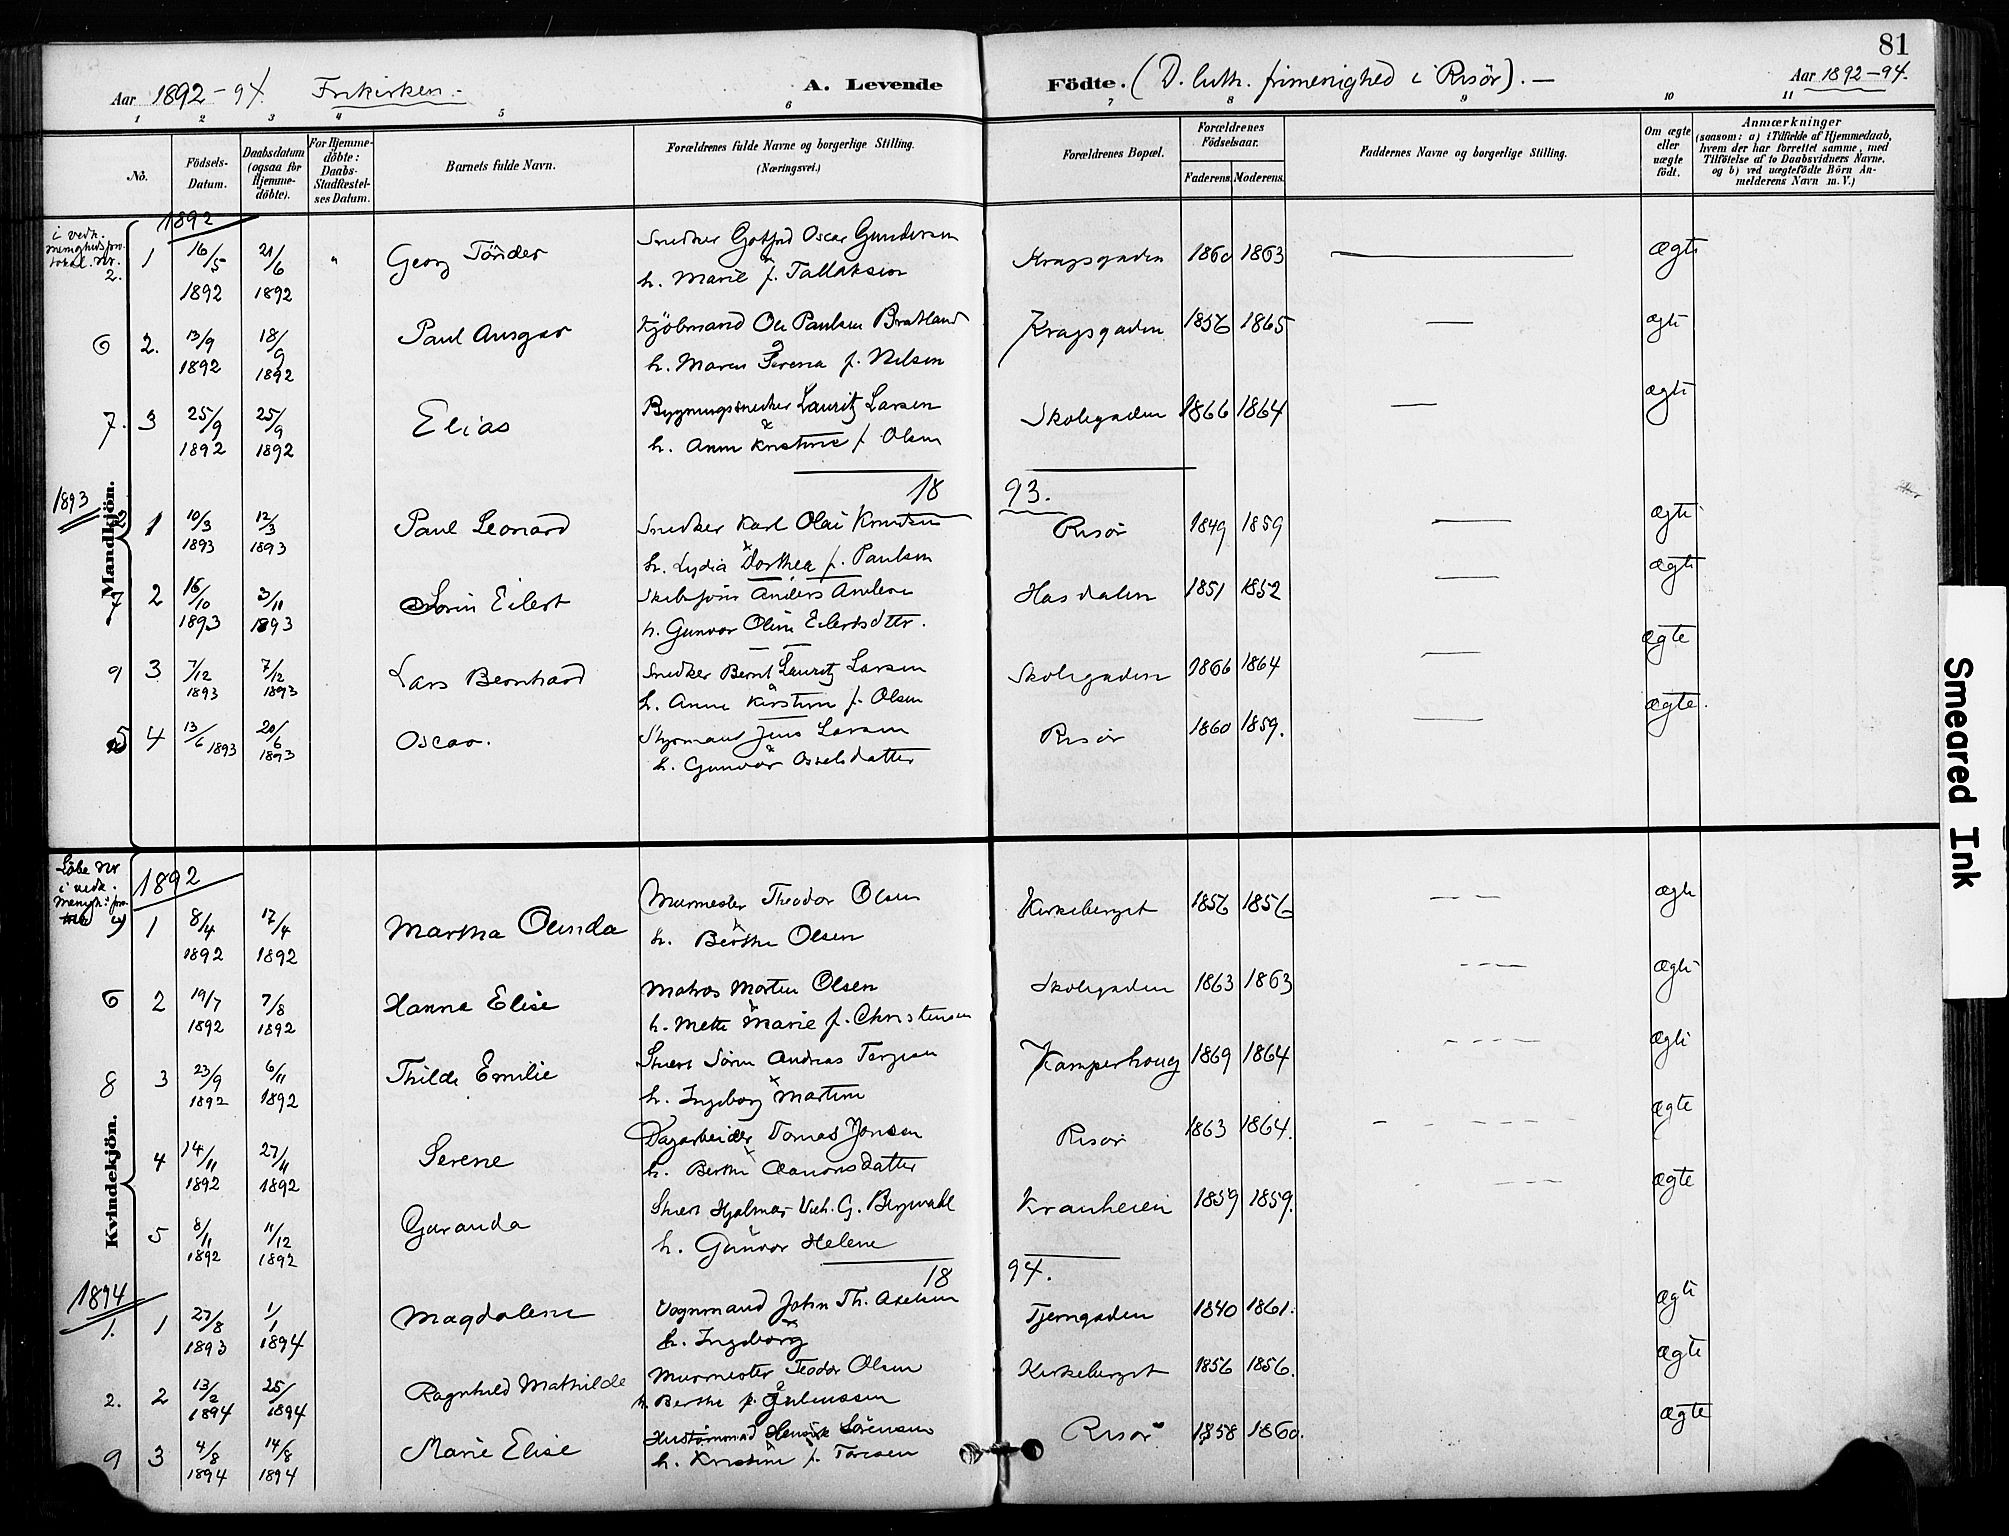 81
Aar 1892-94. Frikirken.- A. Levende Födte. (D. luth. frimenighed i Risör).- Aar 1892-94.
1 2 3 4 5 6 7 8 9 10 11
No.
Födsels-Datum.
Daabsdatum (ogsaa for Hjemme-döbte).
For Hjemme-döbte: Daabs-Stadfæstel-ses Datum.
Barnets fulde Navn.
Forældrenes fulde Navne og borgerlige Stilling.
(Næringsvei.)
Forældrenes Bopæl.
Forældrenes Födselsaar.
Faderens. Moderens.
Faddernes Navne og borgerlige Stilling.
Om ægte eller uægte födt.
Anmærkninger
(saasom: a) i Tilfælde af Hjemmedaab,
hvem der har forrettet samme, med
Tilföielse af to Daabsvidners Navne,
og b) ved uægtefödte Börn An-
melderens Navn m. V.)
Mandkjön.
1892
i vedk. 2. 1 16/5 1892 21/6 1892 " Georg Tönder Snedker Gotfred Oscar Gundersen Kragsgaden 1860 1863 — ægte
h. Marie f. Tallaksen
6 2. 13/9 1892 18/9 1892 Paul Ansgar Kjöbmand Ole Paulsen Bratland Kragsgaden 1856 1865 — ægte
h. Maren Serena f. Nilsen
7. 3 25/9 1892 25/9 1892 Elias Bygningssnedker Lauritz Larsen Skolegaden 1866 1864 — ægte
h. Anne Kristine f. Olsen
1893
18 93.
1 10/3 1893 12/3 1893 Paul Leonard Snedker Karl Olai Knutsen Risör 1849 1859 — ægte
h. Lydia Dorthea f. Paulsen
7 2 16/10 1893 3/11 1893 Sörin Eilert Anders Hasdalen 1851 1852 — ægte
h. Gunvor Oline Eilertsdtter.
9 3 7/12 1893 7/12 1893 Lars Bernhard Snedker Bernt Lauritz Larsen Skolegaden 1866 1864 — ægte
h. Anne Kirstine f. Olsen
5 4 13/6 1893 20/6 1893 Oscar. Styrmand Jens Larsen Risör 1860 1859. — ægte.
h. Gunvor Oselsdatter
Kvindekjön.
Löbe Nr i vedk.
1892
1 8/4 1892 17/4 1892 Martha Olinda Murmester Theodor Olsen Kirkeberget 1856 1856 — ægte
h. Berthe Olsen
6 2 19/7 1892 7/8 1892 Hanna Elise Matros Morten Olsen Skolegaden 1863 1863 — ægte
h. Mette Marie f. Christensen
8 3 23/9 1892 6/11 1892 Thilde Emilie Sörin Andreas Terjesen Kamperhoug 1869 1864 — ægte
h. Ingeborg Martine
4 14/11 1892 27/11 1892 Serene Dagarbeider Tomas Jensen Risör 1863 1864. — ægte
h. Berthe Aanonsdatter
5 8/11 1892 11/12 1892 Guranda Hjalmar G. Bergwahl Kranheien 1859 1859. — ægte
h. Gunvor Helene
1894
18 94.
1. 1 27/8 1893 1/1 1894 Magdalene Vognmand John Th. Axelsen Tjerngaden 1840 1861. ægte
h. Ingeborg
2. 2 13/2 1894 25/ 1894 Ragnhild Mathilde Murmester Teodor Olsen Kirkeberget 1856 1856. ægte
h. Berthe f. Juliussen
9 3 4/8 1894 14/8 1894 Marie Elise Henrik Sörensen Risör 1858 1860. ægte
h. Kristine f. Toresen
Smeared Ink